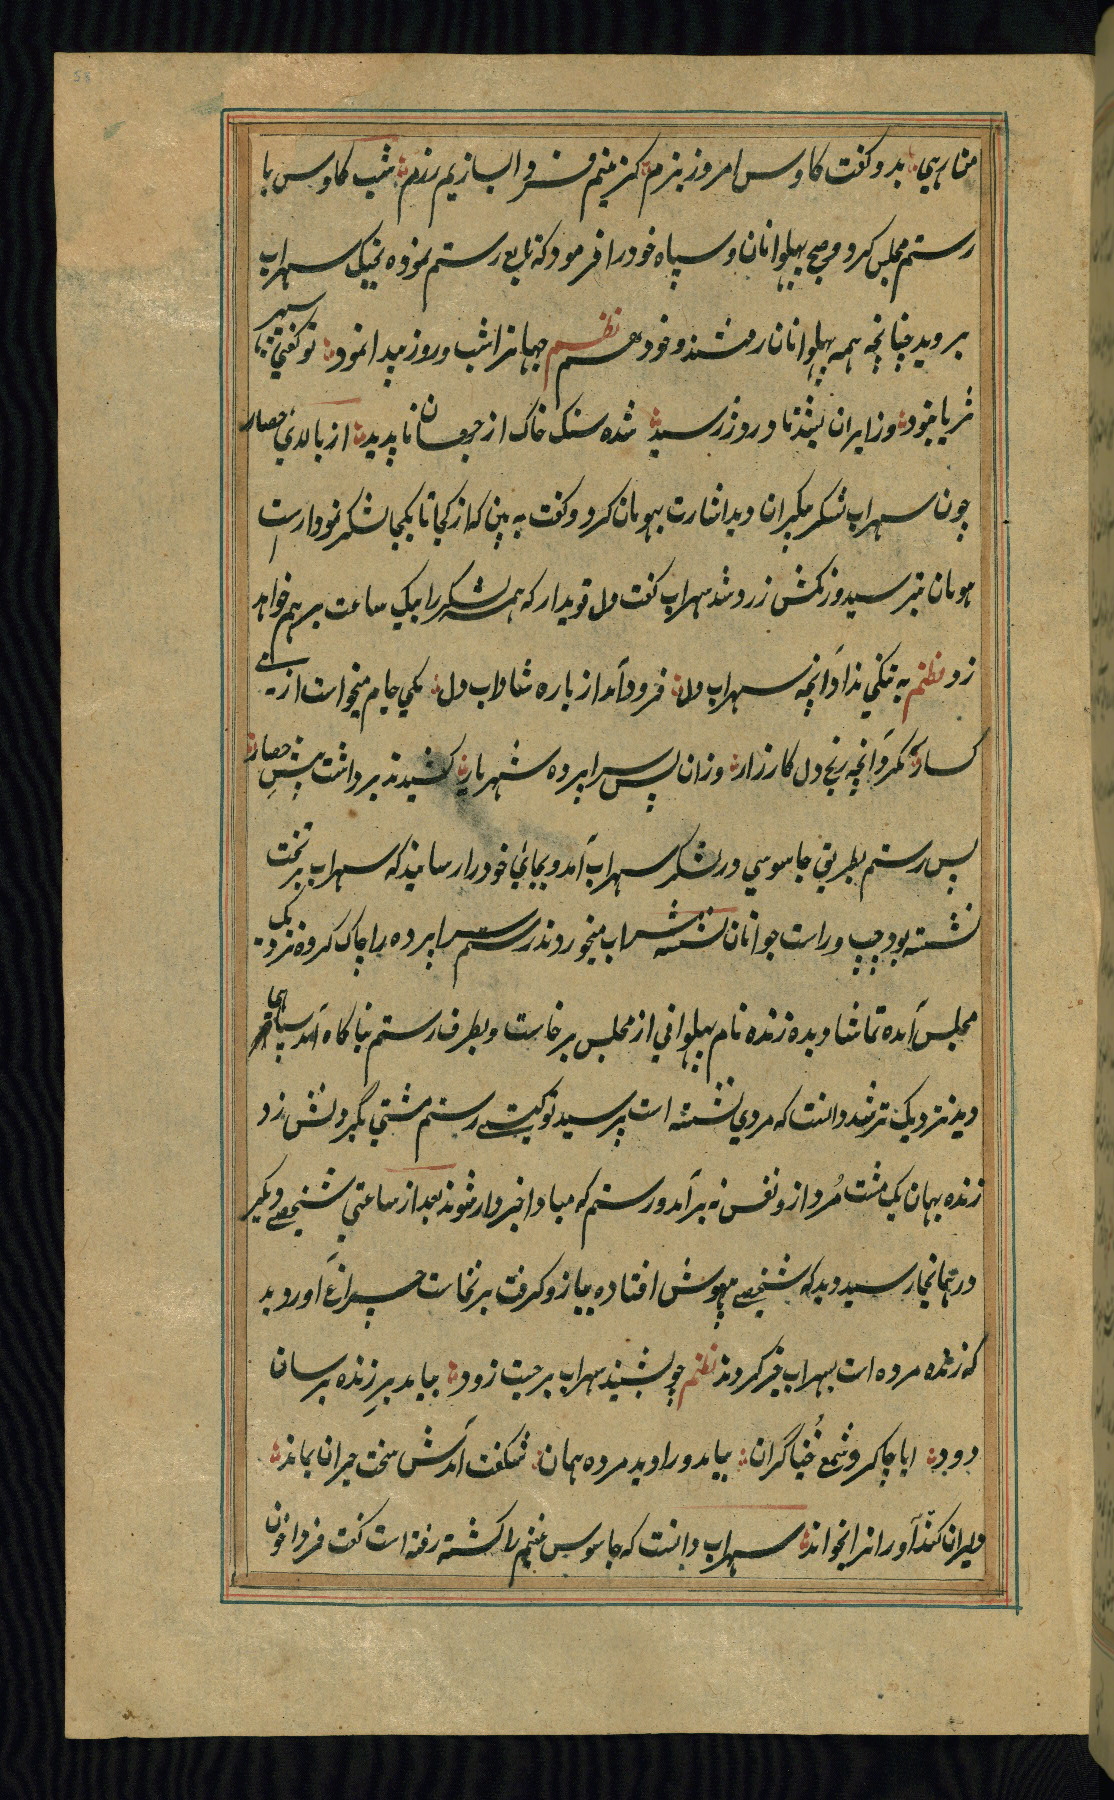 من رهی بدو گفت کاوس امروز بزم گزینیم و فردا بسازیم رزم شب کاوس با
رستم مجلس کرد و صبح پهلوانان و سپاه خود را فرمود که تابع رستم نموده بجنگ سهراب
بروید چنانچه همه پهلوانان رفتند و خود هم نظم جهانرا شب و روز پیدا نمود تو گفتی سپهر
ثریا نبود وز ایران بشد تا در دژ رسید شده سنگ خاک از جهان ناپدید از بالای حصار
چون سهراب لشکر بیکران دید اشارت بهومان کرد و گفت به بین که از کجا تا بکجا لشکر نمودارست
هومان بترسید و رنگش زرد شد سهراب گفت دل قویدار که همه لشکر را بیک ساعت بر هم خواهم
زد نظم به تنگی نداد آنچه سهراب دل فرود آمد از باره شاداب دل یکی جام میخواست از می
گسار نکرد آنچه رنج دل کارزار وزان پس سراپرده شهریار کشیدند بر داشت پیش حصار
پس رستم بطریق جاسوسی در لشکر سهراب آمد و بجائی خود را رسانید که سهراب بر تخت
نشسته بود چپ و راست جوانان نشسته شراب میخوردند رستم سراپرده را چاک کرده نزدیک
مجلس آمده تماشا دیده زنده نام پهلوانی از مجلس برخاست و بطرف رستم بناگاه آمد سیاهی
دید نزدیک تر شد دانست که مردی نشسته است پرسید تو کیستی رستم مشتی بگردنش زد
زنده بهمان یک مشت مُرد ازو نفس نه برآمد و رستم که مبادا خبردار شوند بعد از ساعتی شخصی دیگر
در آنجا رسید دید که شخصی بیهوش افتاده بازو گرفت برنخاست چراغ آورد دید
که زنده مرده است بسهراب خبر کردند نظم چو بشنید سهراب برجست زود بیامد برِ زنده بر سان
دود ابا چاکر و شمع خُنیاگران بیامد ورا دید مرده همان شگفت آمدش سخت حیران بماند
دلیران کندآورانرا بخواند سهراب دانست که جاسوس غنیم را کشته رفته است گفت فردا خون